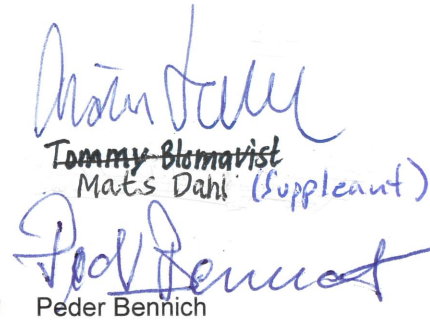 Mats Dahl
Tommy Blomqvist
Mats Dahl (Suppleant)
Peder Bennich